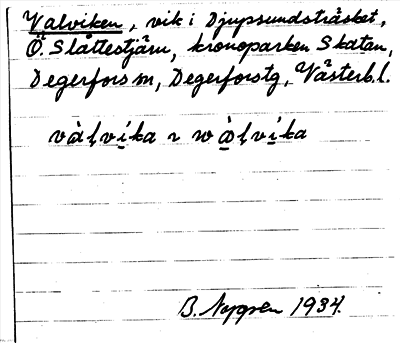 Valviken, vik i Djupsundsträsket,
Ö. Slåttestjärn, kronoparken Skatan,
Degerfors sn, Degerfors tg, Västerb. l.
vàlvika ɿ wàlvika
B. Nygren 1934.